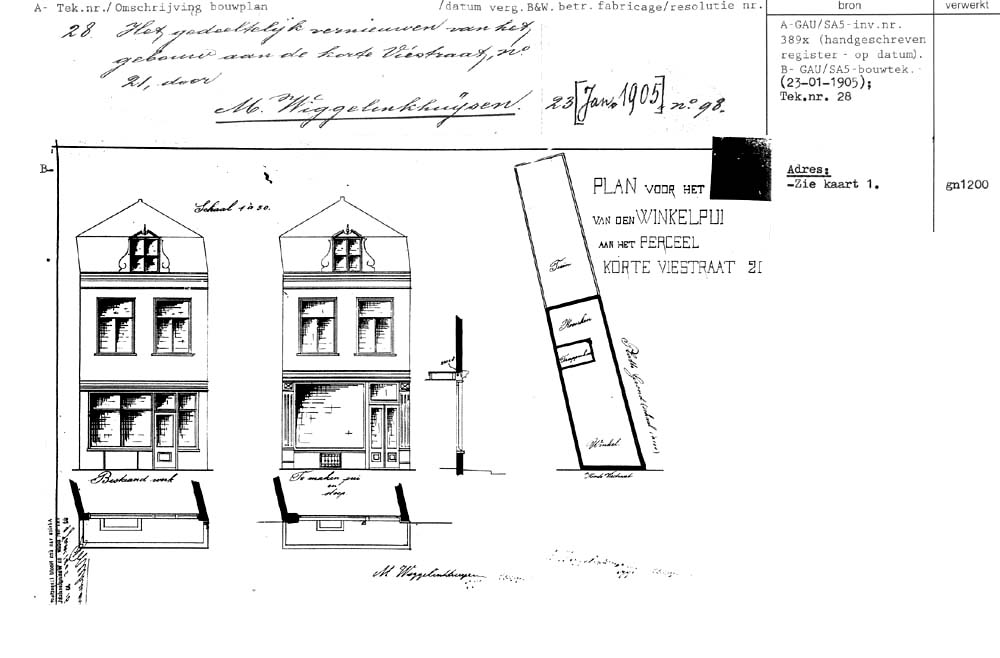 A- Tek.nr./Omschrijving bouwplan /datum verg.B&W.betr.fabricage/resolutie nr. bron verwerkt
28. Het gedeeltelijk vernieuwen van het
gebouw aan de korte Viestraat, no
21, door
M. Wiggelinkhuijsen. 23 [Jan. 1905] no 98.
A-GAU/SA5-inv.nr.
389x (handgeschreven
register - op datum).
B- GAU/SA5-bouwtek.-
(23-01-1905);
Tek.nr. 28
Adres:
-Zie kaart 1. gn1200
B-
Schaal 1 à 50.
PLAN VOOR HET
VAN DEN WINKELPUI
AAN HET PERCEEL
KORTE VIESTRAAT 21
Tuin
Keuken
Trappenhuis
Winkel
Korte Viestraat
Bestaand werk
Te maken pui
en
stoep
M Wiggelinkhuijsen